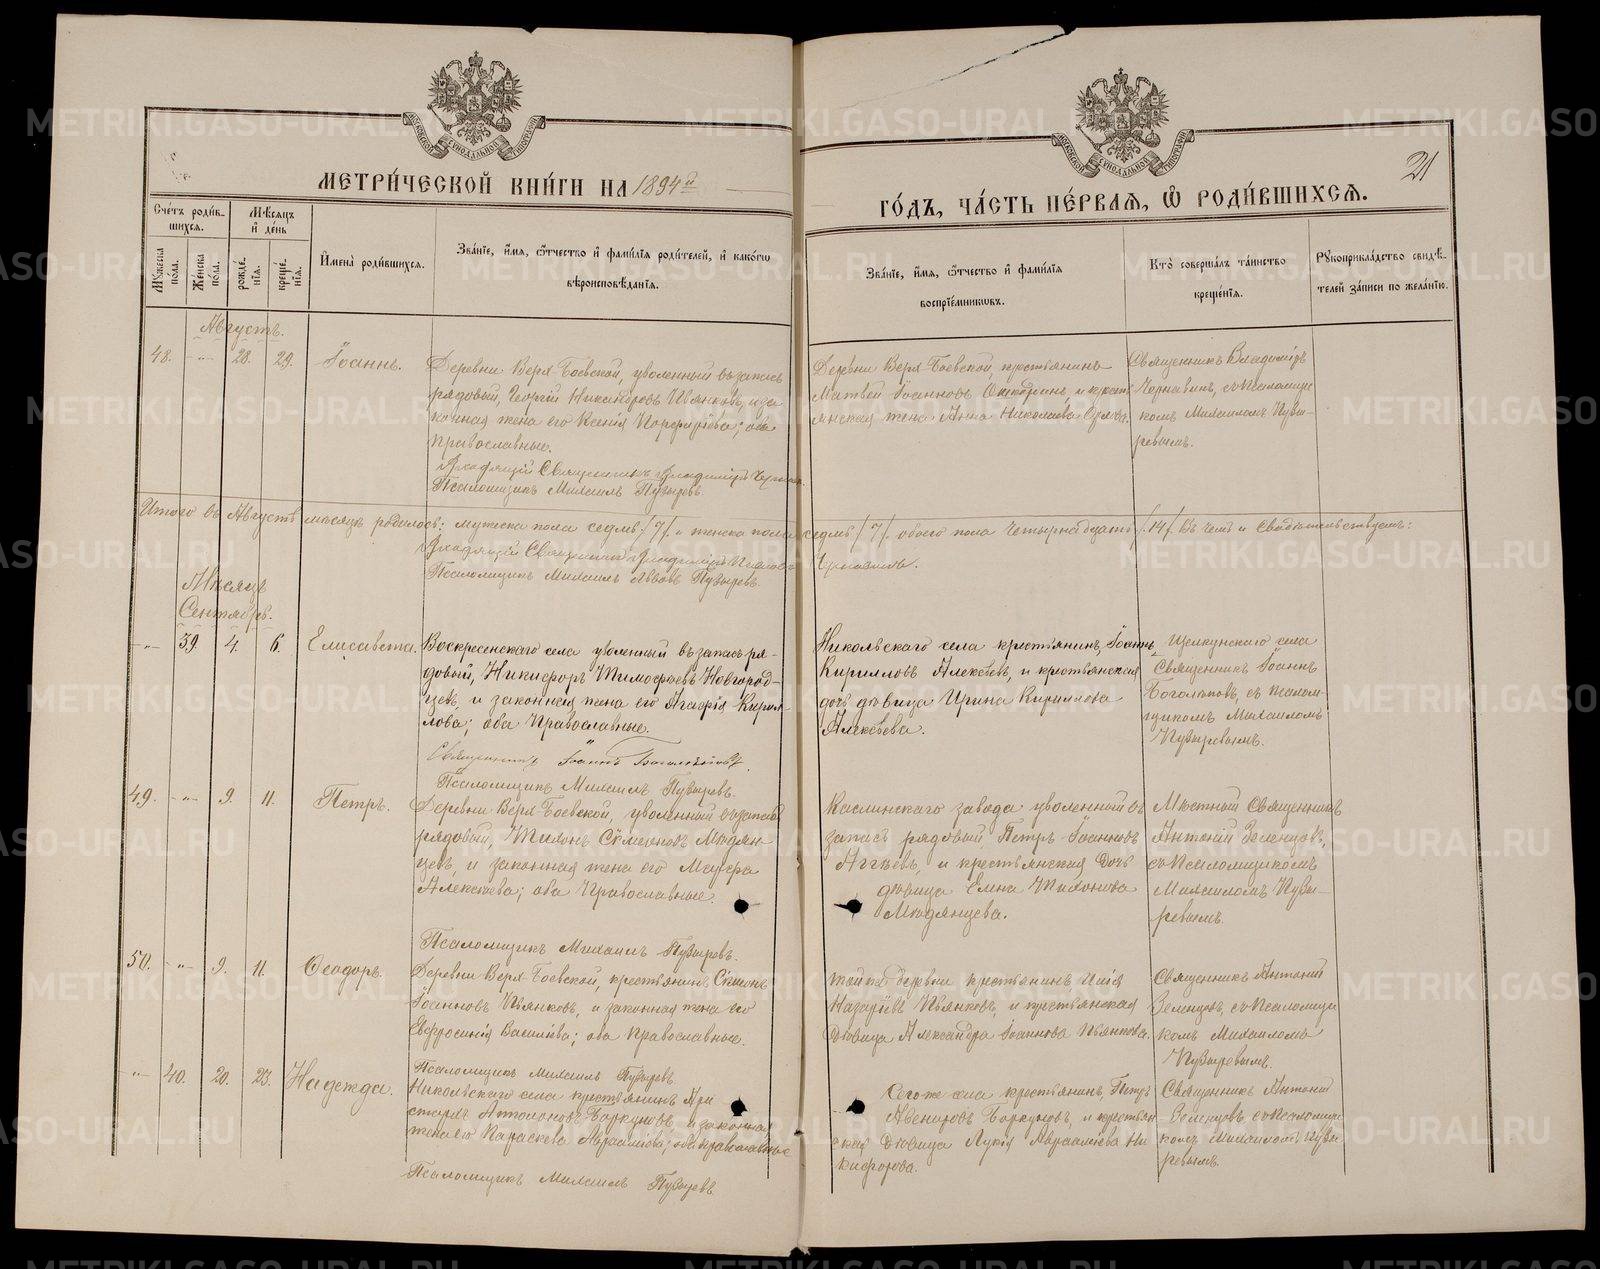 МЕТРИ́ЧЕСКОЙ КНИ́ГИ НА 1894й
ГО́ДЪ, ЧА́СТЬ ПЕ́РВАЯ, Ѡ РОДИ́ВШИХСЯ.
21
Сче́тъ роди́в-
шихся.
Мѣ́сяцъ
и де́нь
Му́жеска
по́ла.
Же́нска
по́ла.
рожде́-
нія.
креще́-
нія.
Имена̀ роди́вшихся.
Зва́нїе, и́мя, ѻ́тчество и фами́лїя роди́телей, и како́гѡ
вѣроисповѣ́данїя.
Зва́нїе, и́мя, ѻ́тчество и фами́лїя
воспрїе́мниковъ.
Кто̀ соверша́лъ та́инство
креще́нїя.
Рꙋкоприкла́дство свидѣ́-
телей за́писи по жела́нїю.
Августъ.
48. -"- 28. 29. Іоаннъ.
Деревни Верх-Боевской, уволенный въ запасъ
рядовый, Георгій Никаноровъ Пьянковъ, и за-
конная жена его Ксенія Порфиріева; оба
православные.
Священникъ Владиміръ
Псаломщикъ Михаилъ Пузыревъ.
Деревни Верх-Боевской, крестьянинъ
Матвѣй Іоанновъ и крест
янская жена Анна Николаева
Священникъ Владиміръ
Чернавинъ, съ псаломщи
комъ Михаиломъ Пузы-
ревымъ.
Итого въ Августѣ мѣсяцѣ родилось: мужеска пола седмь /7/. и женска пола седмь /7/. обоего пола четырнадцать /14/. въ чемъ и свидѣтельствуемъ:
Священникъ Владиміръ
Псаломщикъ Михаилъ Львовъ Пузыревъ.
Мѣсяцъ
Сентябрь.
-"- 39. 4. 6. Елисавета.
Воскресенскаго села уволенный въ запасъ ря-
довый, Никифоръ Тимофеевъ Новгород-
цевъ, и законная жена его Агафія Кирил-
лова; оба православные.
Священникъ Іоаннъ Боголѣповъ.
Псаломщикъ Михаилъ Пузыревъ.
Никольскаго села крестьянинъ, Іоаннъ
Кирилловъ Алексѣевъ, и крестьянская
дочь дѣвица Ирина Кириллова
Алексѣева.
Щелкунскаго села
Священникъ Іоаннъ
Боголѣповъ, съ псалом-
щикомъ Михаиломъ
Пузыревымъ.
49. -"- 9. 11. Петръ.
Деревни Верх-Боевской, уволенный въ запасъ
рядовый, Тихонъ Сѷмеоновъ Мѣдян
цевъ, и законная жена его Мавра
Алексѣева; оба православные.
Псаломщикъ Михаилъ Пузыревъ.
Каслинскаго завода уволенный въ
запасъ рядовый Петръ Іоанновъ
Агѣевъ, и крестьянская дочь
дѣвица Елена Тихонова
Мѣдянцева.
Мѣстный Священникъ
Антоній Зеленцовъ,
съ псаломщикомъ
Михаиломъ Пузы-
ревымъ.
50. -"- 9. 11. Ѳеодоръ.
Деревни Верх-Боевской, крестьянинъ Сѷмеонъ
Іоанновъ Пьянковъ, и законная жена его
Евфросинія Василіева; оба православные.
Псаломщикъ Михаилъ Пузыревъ.
той же деревни крестьянинъ Илія
Назаріевъ Пьянковъ, и крестьянская
дѣвица Александра Іоаннова Пьянкова.
Священникъ Антоній
Зеленцовъ, съ псаломщи
комъ Михаиломъ
Пузыревымъ.
-"- 40. 20. 23. Надежда.
Никольскаго села крестьянинъ Ари
стархъ Баркуновъ, и законная
жена его Параскева Авраамова; оба православные
Псаломщикъ Михаилъ Пузыревъ
Сего же села крестьянинъ, Петръ
Авенировъ Баркуновъ, и крестьян
ская дѣвица Лукія Авраамова Ни
кифорова.
Священникъ Антоній
Зеленцовъ, съ псаломщи
комъ Михаиломъ Пузы
ревымъ.
METRIKI.GASO-URAL.RU